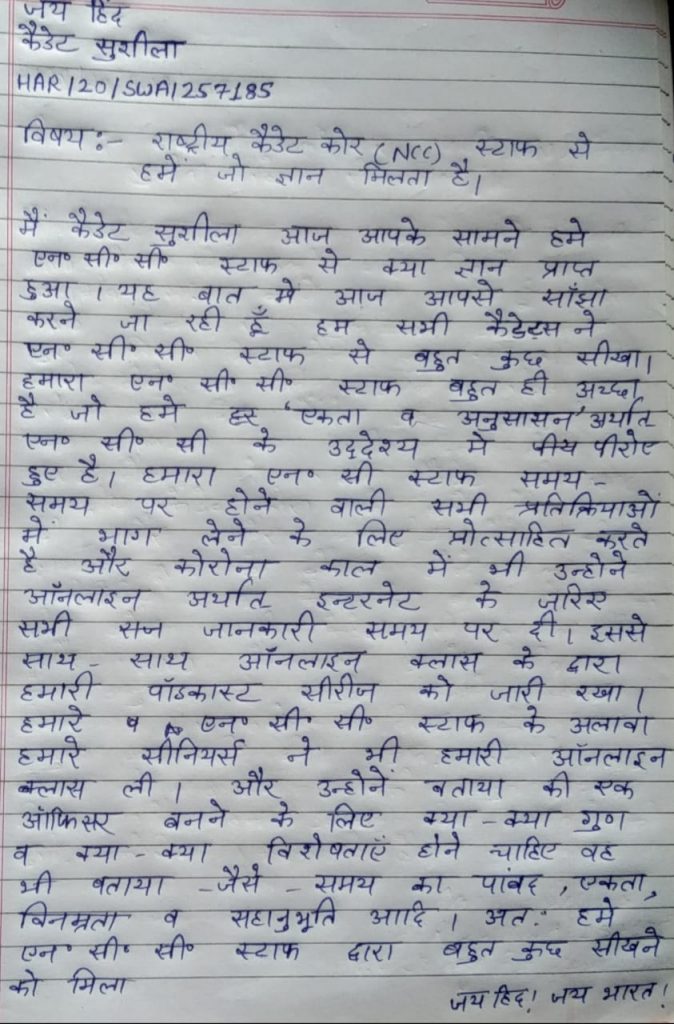 जय हिंद
कैडेट सुशीला
HAR/20/SWA/257185
विषय:- राष्ट्रीय कैडेट कोर (NCC) स्टाफ से
हमें जो ज्ञान मिलता है।
मैं कैडेट सुशीला आज आपके सामने हमे
एन॰ सी॰ सी॰ स्टाफ से क्या ज्ञान प्राप्त
हुआ । यह बात मे आज आपसे साँझा
करने जा रही हूँ हम सभी कैडेट्स ने
एन॰ सी॰ सी॰ स्टाफ से बहुत कुछ सीखा।
हमारा एन॰ सी॰ सी॰ स्टाफ बहुत ही अच्छा
है जो हमे हर 'एकता व अनुसासन' अर्थात
एन॰ सी॰ सी के उद्देश्य मे पीरोए
हुए है। हमारा एन॰ सी स्टाफ समय-
समय पर होने वाली सभी प्रतिक्रियाओं
में भाग लेने के लिए प्रोत्साहित करते
है और कोरोना काल में भी उन्होने
ऑनलाइन अर्थात इन्टरनेट के जरिए
सभी जानकारी समय पर दी। इससे
साथ-साथ ऑनलाइन क्लास के द्वारा
हमारी पॉडकास्ट सीरीज को जारी रखा।
हमारे व एन॰ सी॰ सी॰ स्टाफ के अलावा
हमारे सीनियर्स ने भी हमारी ऑनलाइन
क्लास ली । और उन्होनें बताया की एक
ऑफिसर बनने के लिए क्या-क्या गुण
व क्या-क्या विशेषताएँ होने चाहिए वह
भी बताया -जैसे - समय का पांबद, एकता,
विनम्रता व सहानुभूति आदि । अत: हमे
एन॰ सी॰ सी॰ स्टाफ द्वारा बहुत कुछ सीखने
को मिला
जय हिंद! जय भारत!